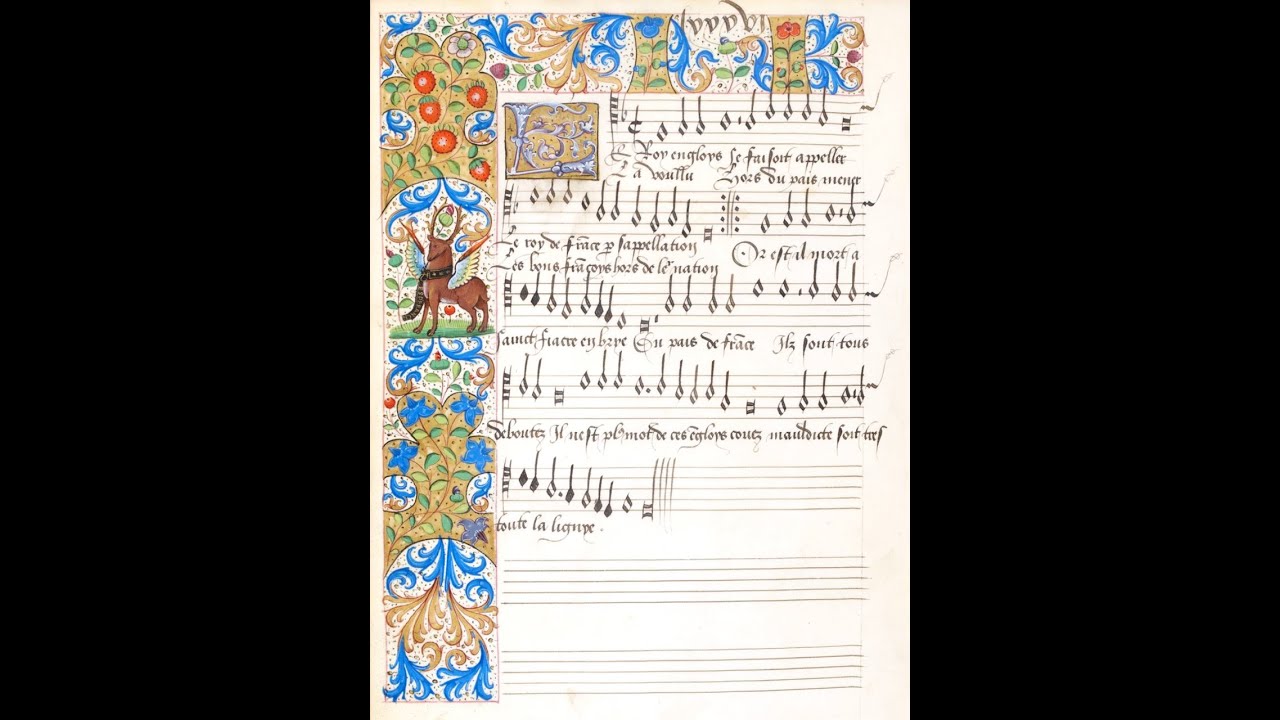 lxxxvi
LE Roy engloys se faisoit appeller
Le roy de frāce p̱ sappellation
Il a voullu hors du pais mener
Les bons frāçoys hors de le² nation
Or est il mort a
sainct fiacre en brye En pais de frāce Ilz sont tous
deboutez Il nest pl⁹ mot de ces ēgloys couez mauldicte soit tres
toute la lignye .